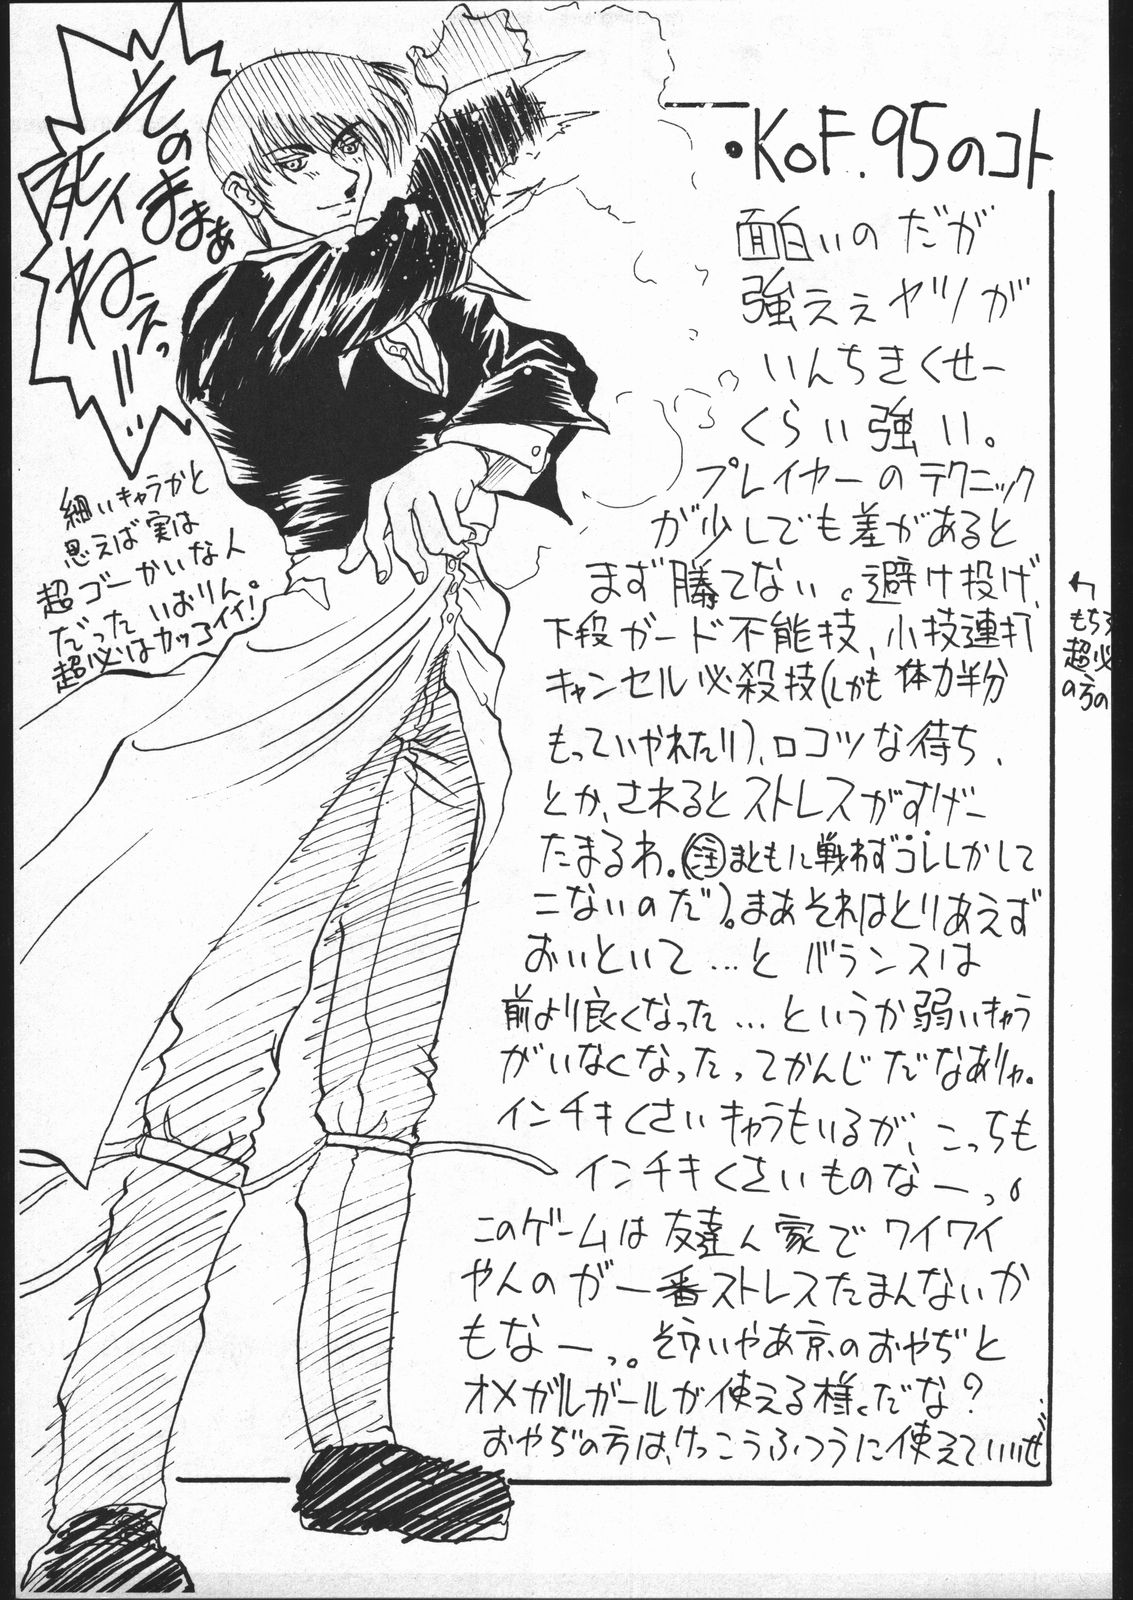 そのままぁ
死ィねぇっ!!…
細いキャラかと
思えば実は
超ゴーかいな人
だったいおりん。
超必はカッコイイ!
・KOF.95のコト
面白いのだが
強ええヤツが
いんちきくせー
くらい強い。
プレイヤーのテクニック
が少しでも差があると
まず勝てない。避け投げ、
下段ガード不能技、小技連打
キャンセル必殺技(しかも体力半分
もっていかれたり)、ロコツな待ち、
とか、されるとストレスがすげー
たまるわ。(注まともに戦わずコレしかして
こないのだ)。まあそれはとりあえず
おいといて…と バランスは
前より良くなった…というか弱いキャラ
がいなくなったってかんじだなありゃ。
インチキくさいキャラもいるが、こっちも
インチキくさいものなーっ。
このゲームは友達ん家でワイワイ
やんのが一番ストレスたまんないか
もなーっ。そういやあ京のおやぢと
オメガルガールが使える様だな?
おやぢの方は、けっこうふつうに使えていいぜ…
↰
もちろ
超必
の方の